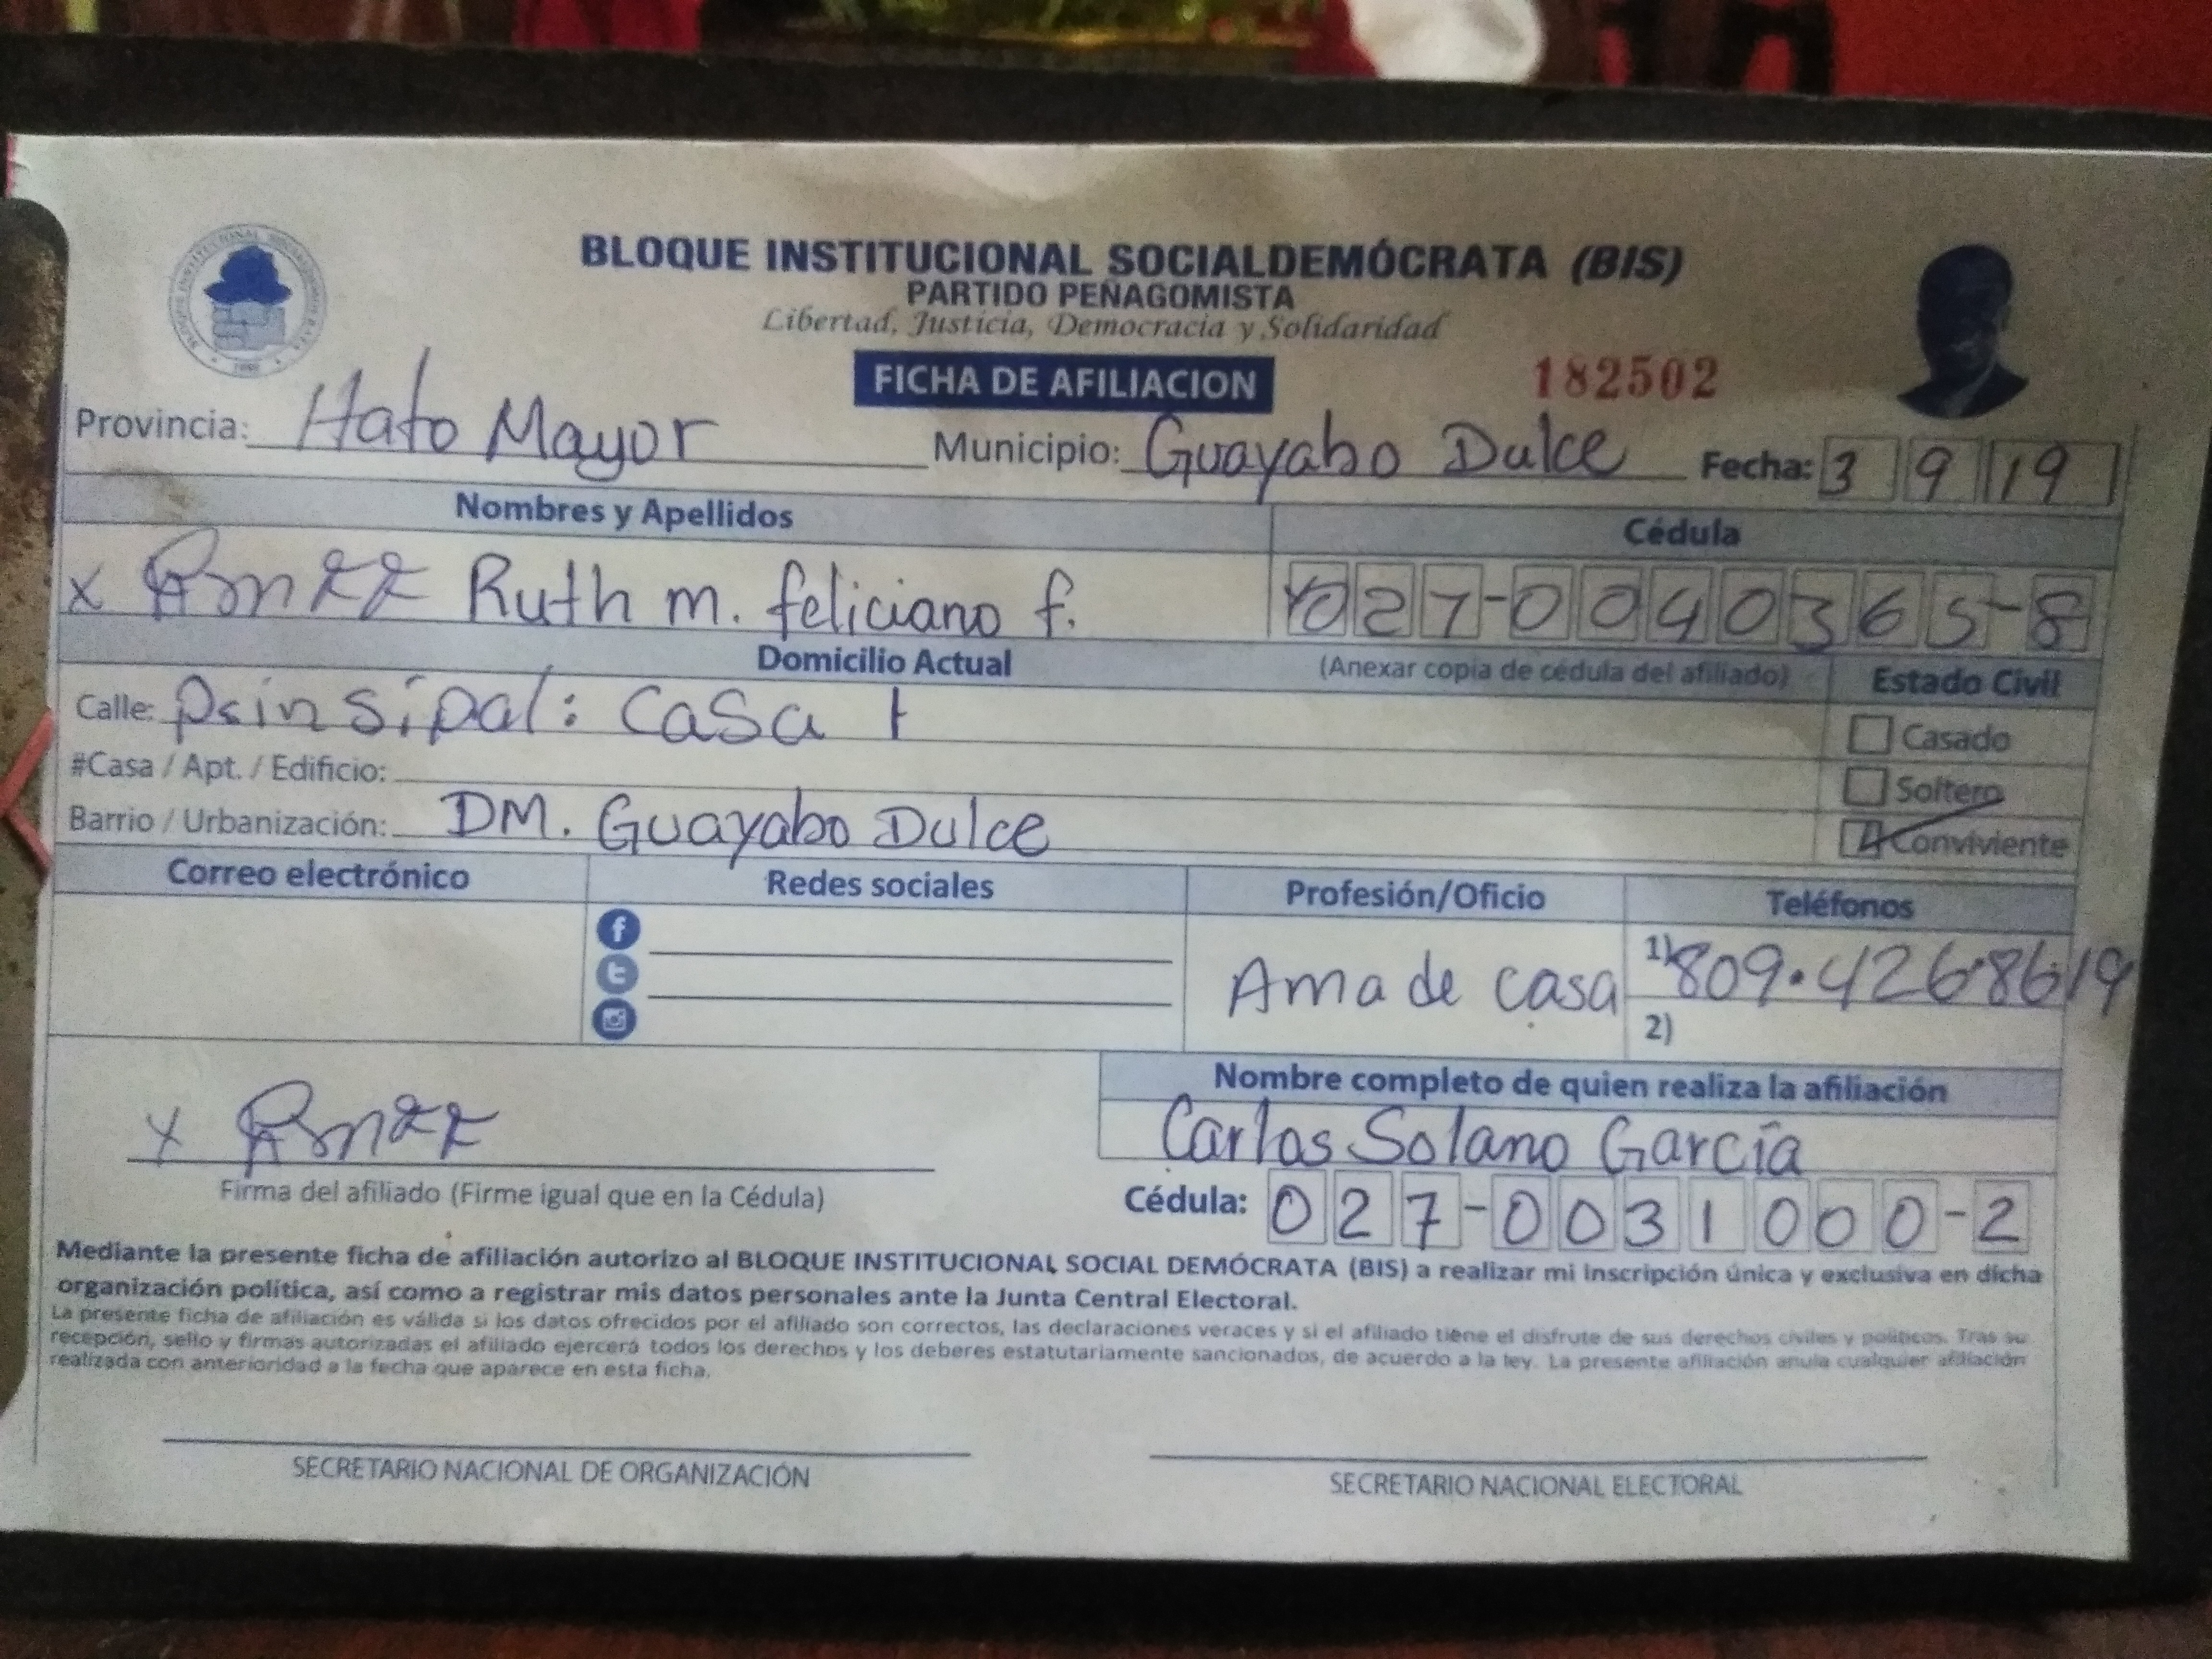 BLOQUE INSTITUCIONAL SOCIALDEMÓCRATA (BIS)
PARTIDO PEÑAGOMISTA
Libertad, Justicia, Democracia y Solidaridad
FICHA DE AFILIACION 182502
Provincia: Hato Mayor Municipio: Guayabo Dulce Fecha: 3 9 19
Nombres y Apellidos Cédula
x Ruth m. feliciano f. 027-0040365-8
Domicilio Actual (Anexar copia de cédula del afiliado) Estado Civil
Calle: prinsipal: casa 1 Casado
#Casa / Apt. / Edificio: Soltero
Barrio / Urbanización: DM. Guayabo Dulce Conviviente
Correo electrónico Redes sociales Profesión/Oficio Teléfonos
Ama de casa 1) 809.426.8619
2)
Nombre completo de quien realiza la afiliación
x Carlos Solano García
Firma del afiliado (Firme igual que en la Cédula) Cédula: 027-0031000-2
Mediante la presente ficha de afiliación autorizo al BLOQUE INSTITUCIONAL SOCIAL DEMÓCRATA (BIS) a realizar mi inscripción única y exclusiva en dicha
organización política, así como a registrar mis datos personales ante la Junta Central Electoral.
La presente ficha de afiliación es válida si los datos ofrecidos por el afiliado son correctos, las declaraciones veraces y si el afiliado tiene el disfrute de sus derechos civiles y políticos. Tras su
recepción, sello y firmas autorizadas el afiliado ejercerá todos los derechos y los deberes estatutariamente sancionados, de acuerdo a la ley. La presente afiliación anula cualquier afiliación
realizada con anterioridad a la fecha que aparece en esta ficha.
SECRETARIO NACIONAL DE ORGANIZACIÓN SECRETARIO NACIONAL ELECTORAL